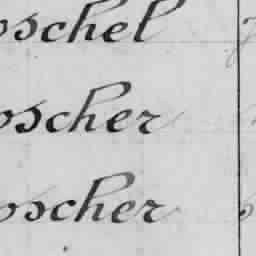 oschel
oscher
oscher